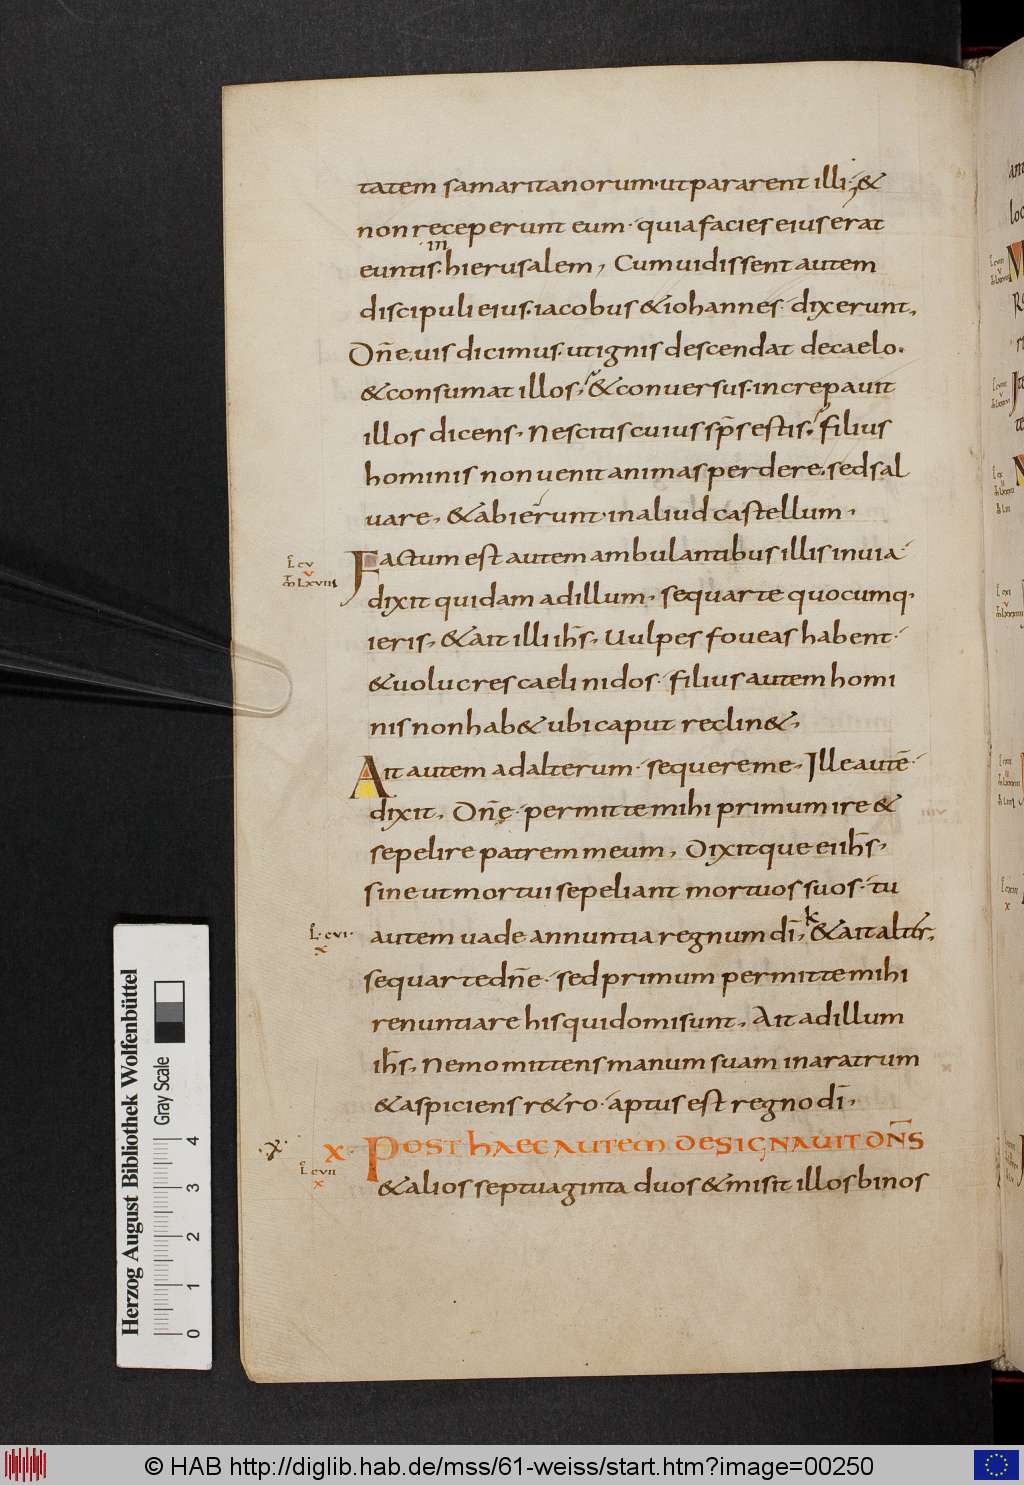 tatem samaritanorum· ut pararent illi·; &
non receperunt eum· quia facies eius erat
in
euntis· hierusalem, Cum uidissent autem
discipuli eius· iacobus & iohannes· dixerunt,
Dñe, uis dicimus· ut ignis descendat de caelo·
& consumat illos; & conuersus· increpauit
illos dicens, Nescitis cuius sp̄s estis; filius
hominis non uenit animas perdere, sed sal
uare, & abierunt· in aliud castellum,
L cv
v
m̄ Lxviii
Factum est autem ambulantibus illis in uia·
dixit quidam ad illum, sequar te quocumq·
ieris, & ait illi ih̄s, Uulpes foueas habent·
& uolucres caeli nidos· filius autem homi
nis non hab& ubi caput reclin&,
Ait autem ad alterum· sequere me, Ille autē·
dixit, Dñe· permitte mihi primum ire &
sepelire patrem meum, Dixitque ei ih̄s,
sine ut mortui sepeliant mortuos suos· tu
L· cvi·
x
k
autem uade annuntia regnum dī, & ait alter,
sequar te dñe· sed primum permitte mihi
renuntiare his qui domi sunt, Ait ad illum
ih̄s, Nemo mittens manum suam in aratrum
& aspiciens r&ro· aptus est regno dī,
·x· X· Post haec autem designauit dñs
L cvii
x
& alios septuaginta duos & misit illos binos
Herzog August Bibliothek Wolfenbüttel
Gray Scale
0 1 2 3 4
© HAB http://diglib.hab.de/mss/61-weiss/start.htm?image=00250